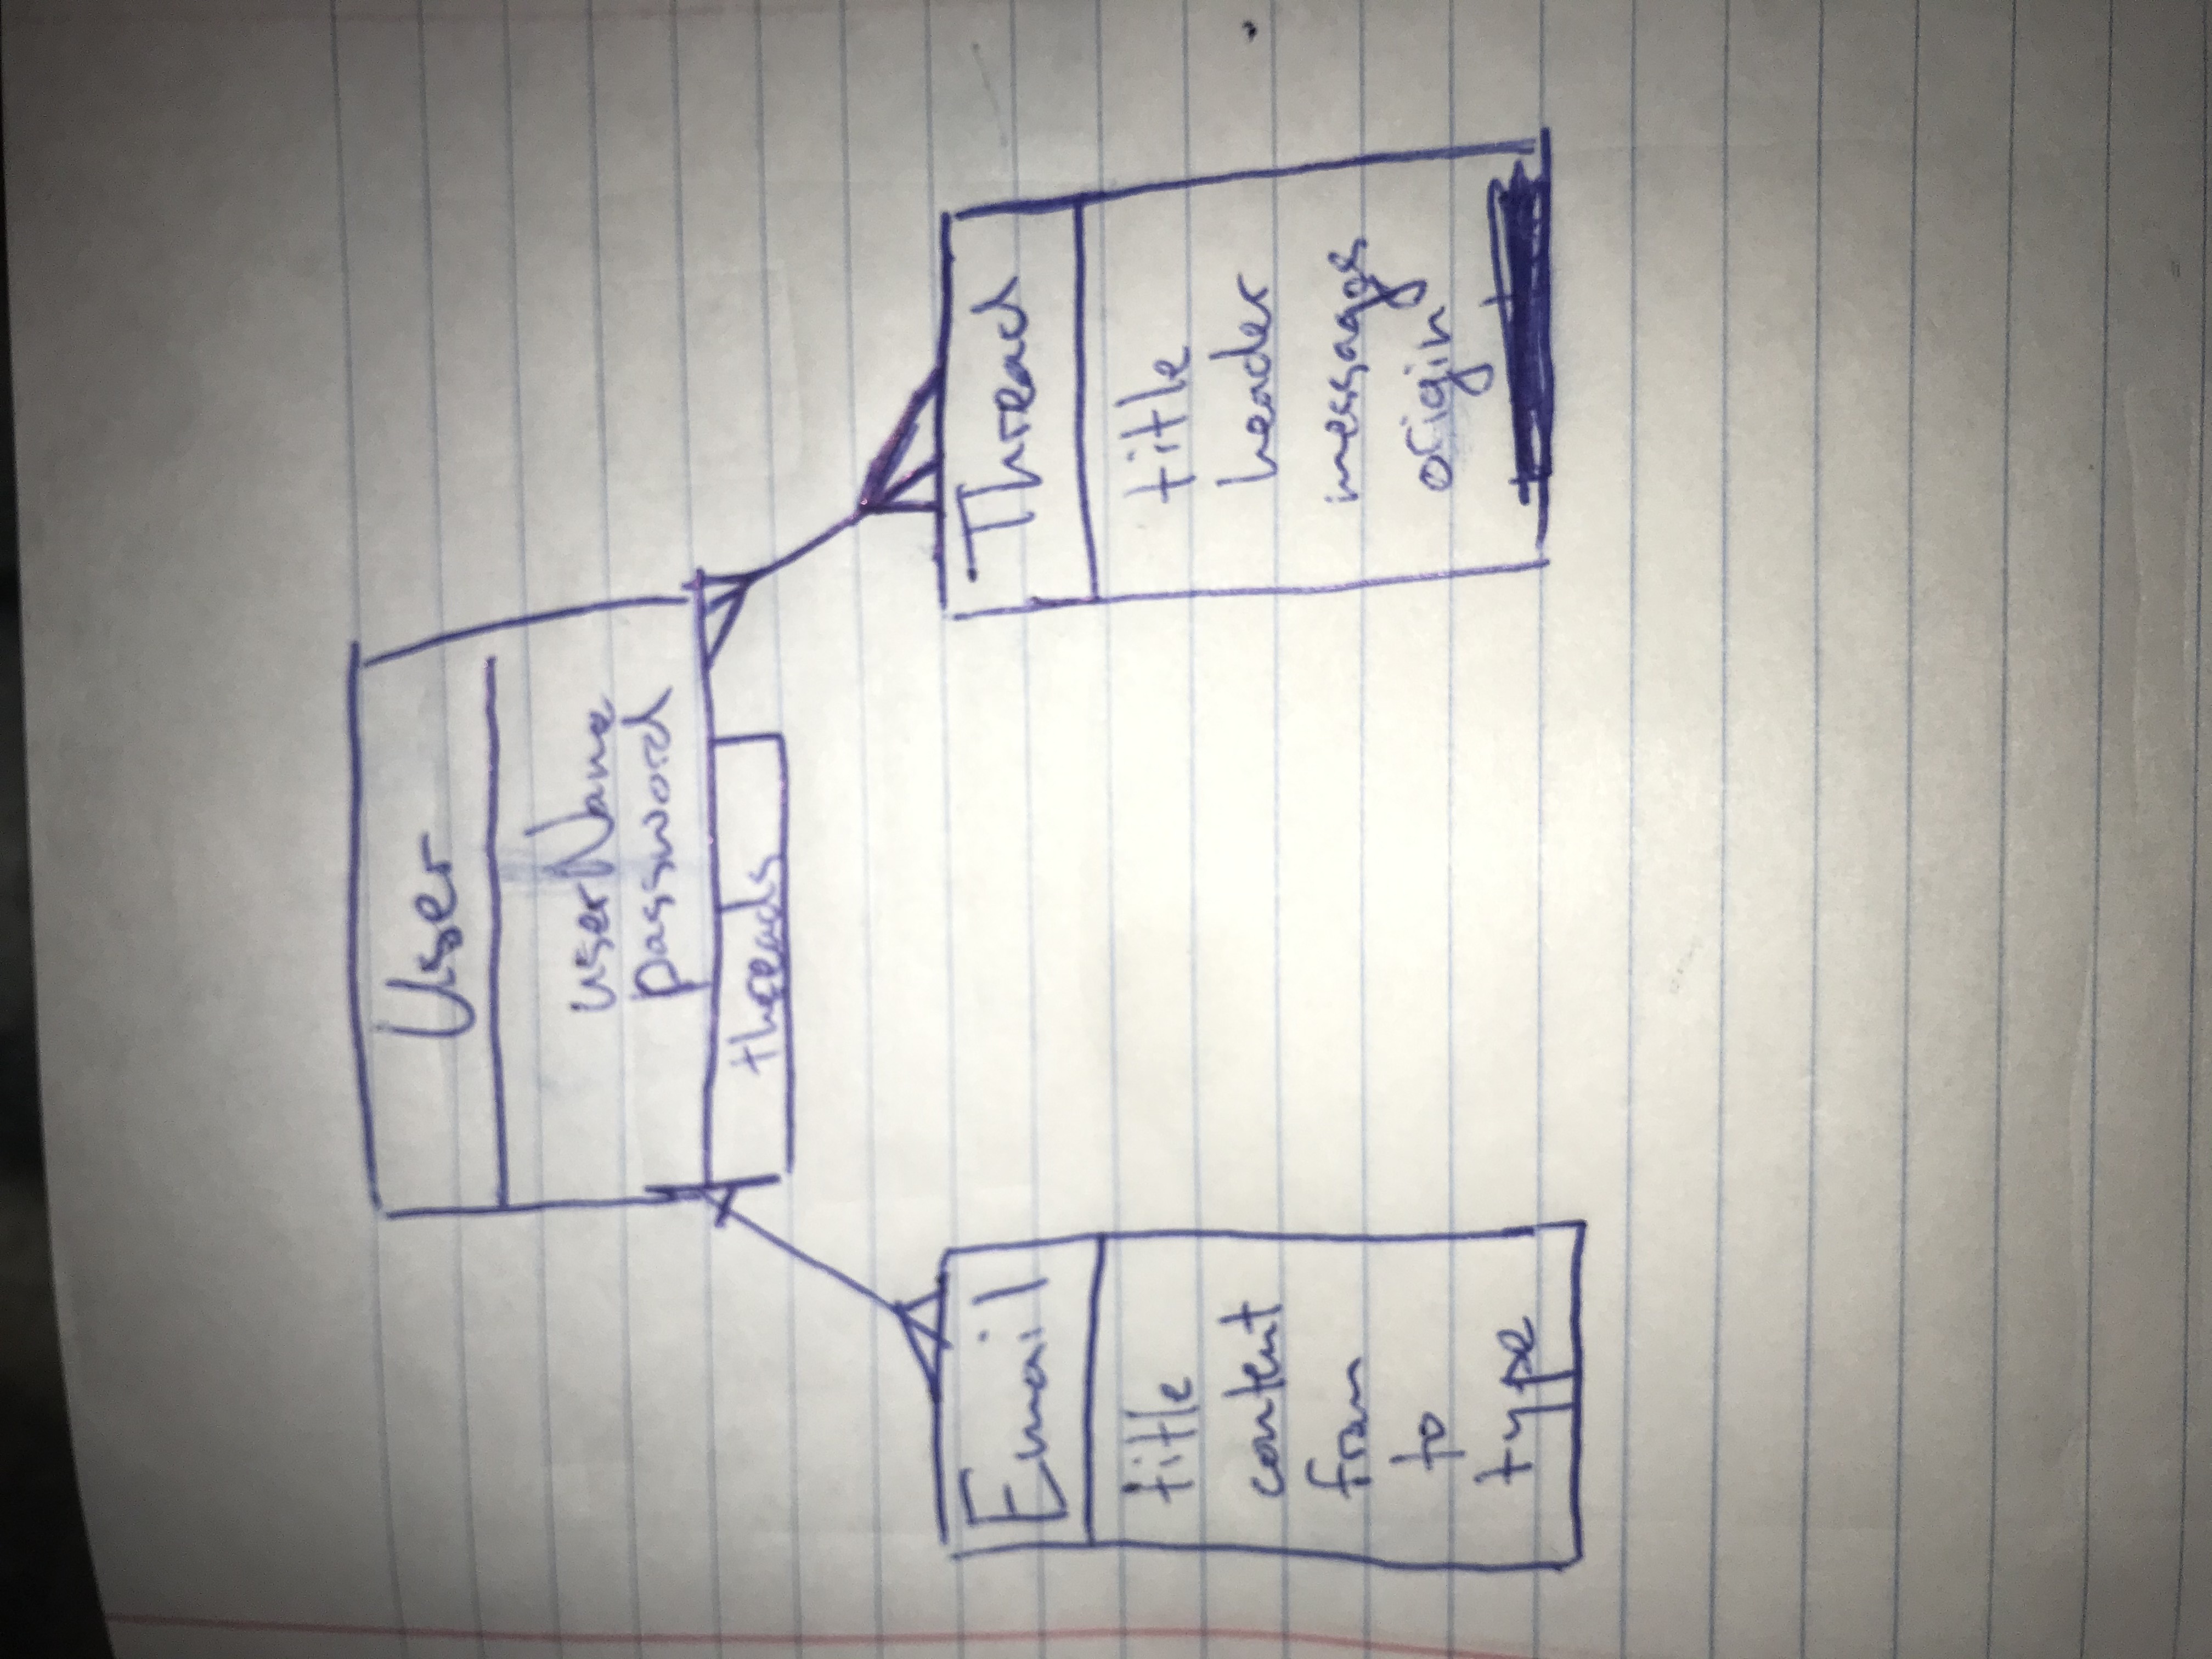 User
userName
password
threads
Email
title
content
from
to
type
Thread
title
header
messages
origin